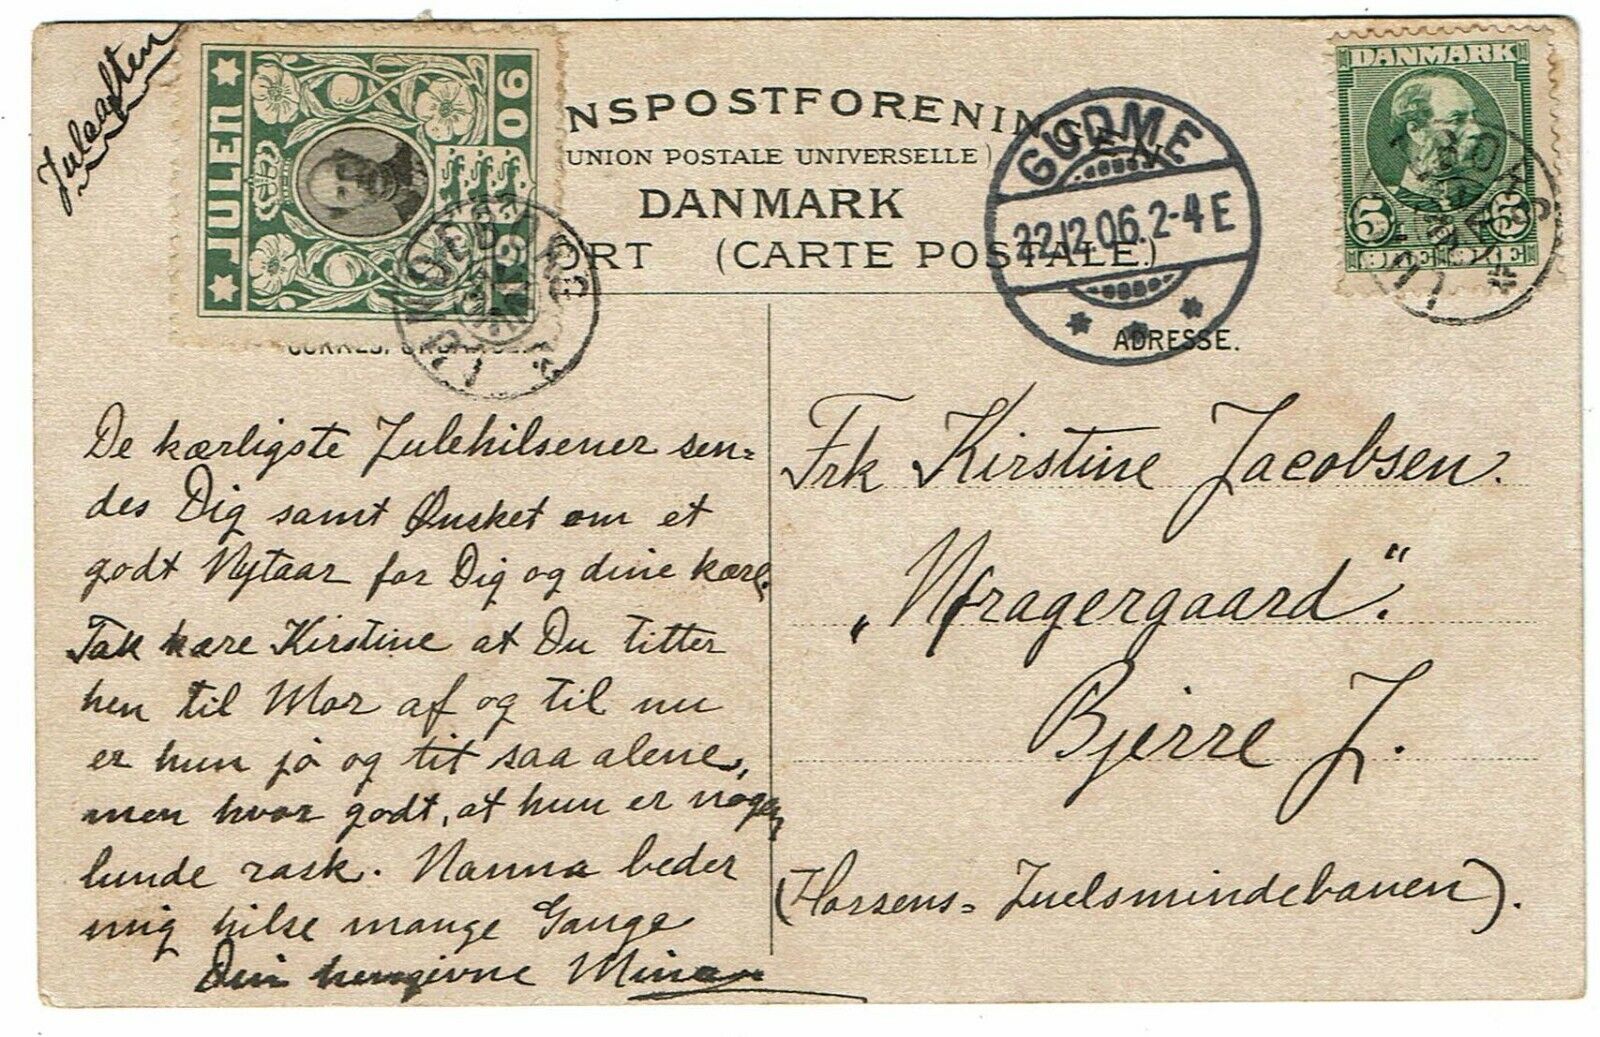 Juleaften
JULEN
1906
NSPOSTFORENINGEN
UNION POSTALE UNIVERSELLE)
DANMARK
ORT (CARTE POSTALE.)
GUDME
22.12.06.2-4 E
DANMARK
5 5
ØRE ØRE
ADRESSE.
De kærligste Julehilsener sen=
des Dig samt Ønsket om et
godt Nytaar for Dig og dine kære.
Tak kære Kirstine at Du titter
hen til Mor af og til nu
er hun jo og tit saa alene,
men hvor godt, at hun er nogen
lunde rask. Nanna beder
mig hilse mange Gange
Din hengivne Mina
Frk Kirstine Jacobsen.
Bjerre J.
(Horsens=Juelsmindebanen).